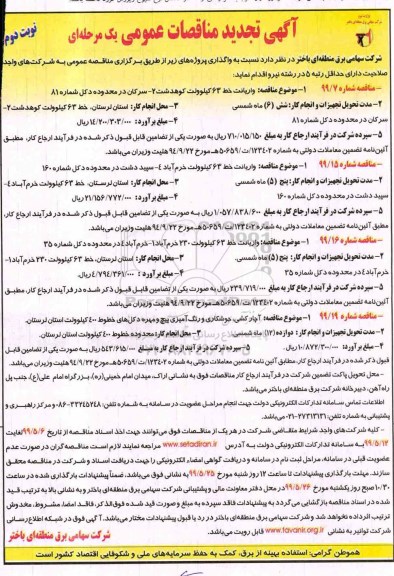 نوبت دوم
آگهی تجدید مناقصات عمومی یک مرحله‌ای
شرکت سهامی برق منطقه‌ای باختر در نظر دارد نسبت به واگذاری پروژه‌های زیر از طریق برگزاری مناقصه عمومی به شرکت‌های واجد
صلاحیت دارای حداقل رتبه ۵ در رشته نیرو اقدام نماید:
- مناقصه شماره ۹۹/۷ ۱- موضوع مناقصه: واریانت خط ۶۳ کیلوولت کوهدشت ۲- سرکان در محدوده دکل شماره ۸۱
۲- مدت تحویل تجهیزات و انجام کار: شش (۶) ماه شمسی ۳- محل انجام کار: استان لرستان، خط ۶۳ کیلوولت کوهدشت ۲-
سرکان در محدوده دکل شماره ۸۱ ۴- مبلغ برآورد: ۱۴/۲۰۰/۳۰۳/۰۰۰ ریال
۵- سپرده شرکت در فرآیند ارجاع کار به مبلغ ۷۱۰/۰۱۵/۱۵۰ ریال به صورت یکی از تضامین قابل قبول ذکر شده در فرآیند ارجاع کار، مطابق
آئین‌نامه تضمین معاملات دولتی به شماره ۱۲۳۴۰۲/ت۵۰۶۵۹هـ مورخ ۹۴/۹/۲۲ هئیت وزیران می‌باشد.
- مناقصه شماره ۹۹/۱۵ ۱- موضوع مناقصه: واریانت خط ۶۳ کیلوولت خرم‌آباد ۴- سپید دشت در محدوده دکل شماره ۱۶۰
۲- مدت تحویل تجهیزات و انجام کار: پنج (۵) ماه شمسی ۳- محل انجام کار: استان لرستان، خط ۶۳ کیلوولت خرم‌آباد ۴-
سپید دشت در محدوده دکل شماره ۱۶۰ ۴- مبلغ برآورد: ۲۱/۱۵۶/۷۷۲/۰۰۰ ریال
۵- سپرده شرکت در فرآیند ارجاع کار به مبلغ ۱/۰۵۷/۸۳۸/۶۰۰ ریال به صورت یکی از تضامین قابل قبول ذکر شده در فرآیند ارجاع کار،
مطابق آئین‌نامه تضمین معاملات دولتی به شماره ۱۲۳۴۰۲/ت۵۰۶۵۹هـ مورخ ۹۴/۹/۲۲ هئیت وزیران می‌باشد.
- مناقصه شماره ۹۹/۱۶ ۱- موضوع مناقصه: واریانت خط ۶۳ کیلوولت ۲۳۰ خرم‌آباد۱- خرم‌آباد۴ در محدوده دکل شماره ۳۵
۲- مدت تحویل تجهیزات و انجام کار: پنج (۵) ماه شمسی ۳- محل انجام کار: استان لرستان، خط ۶۳ کیلوولت ۲۳۰ خرم‌آباد۱-
خرم‌آباد۴ در محدوده دکل شماره ۳۵ ۴- مبلغ برآورد: ۴/۷۹۴/۳۶۱/۰۰۰ ریال
۵- سپرده شرکت در فرآیند ارجاع کار به مبلغ ۲۳۹/۷۱۹/۰۰۰ ریال به صورت یکی از تضامین قابل قبول ذکر شده در فرآیند ارجاع کار، مطابق
آئین‌نامه تضمین معاملات دولتی به شماره ۱۲۳۴۰۲/ت۵۰۶۵۹هـ مورخ ۹۴/۹/۲۲ هئیت وزیران می‌باشد.
- مناقصه شماره ۹۹/۱۹ ۱- موضوع مناقصه: آچار کشی، جوشکاری و رنگ‌آمیزی پیچ و مهره دکل‌های خطوط ۴۰۰ کیلوولت استان لرستان.
۲- مدت تحویل تجهیزات و انجام کار: دوازده (۱۲) ماه شمسی ۳- محل انجام کار: محدوده خطوط ۴۰۰ کیلوولت استان لرستان
۴- مبلغ برآورد: ۱۰/۸۷۲/۳۰۰/۰۰۰ ریال ۵- سپرده شرکت در فرآیند ارجاع کار به مبلغ ۵۴۳/۶۱۵/۰۰۰ ریال به صورت یکی از تضامین قابل
قبول ذکر شده در فرآیند ارجاع کار، مطابق آئین نامه تضمین معاملات دولتی به شماره ۱۲۳۴۰۲/ت۵۰۶۵۹هـ مورخ ۹۴/۹/۲۲ هئیت وزیران می‌باشد.
- محل تحویل پاکت تضمین شرکت در فرآیند ارجاع کار مناقصات فوق به نشانی اراک، میدان امام خمینی(ره)، بزرگراه امام علی(ع)، جنب پل
راه‌آهن، دبیرخانه شرکت برق منطقه‌ای باختر می‌باشد.
اطلاعات تماس سامانه تدارکات الکترونیکی دولت جهت انجام مراحل عضویت در سامانه، به شماره تلفن: ۳۳۲۴۵۲۴۸-۰۸۶ و مرکز راهبری و
پشتیبانی به شماره تلفن: ۲۷۳۱۳۱۳۱-۰۲۱ می‌باشد.
- کلیه شرکت‌های واجد شرایط متقاضی شرکت در هر یک از مناقصات فوق می‌توانند جهت اخذ اسناد مناقصه از تاریخ ۹۹/۵/۶ لغایت
۹۹/۵/۱۲ به سامانه تدارکات الکترونیکی دولت به آدرس www.setadiran.ir مراجعه نمایند لازم است مناقصه گران در صورت عدم
عضویت قبلی در سامانه، مراحل ثبت نام در سامانه و دریافت گواهی امضاء الکترونیکی را جهت دریافت اسناد و شرکت در مناقصه محقق
سازند. مهلت بارگذاری پیشنهادات تا ساعت ۱۲ روز شنبه مورخ ۹۹/۵/۲۵ به نشانی فوق می‌باشد، ضمناً پیشنهادات بارگذاری شده در ساعت
۱۰/۳۰ صبح روز یکشنبه مورخ ۹۹/۵/۲۶ در محل دفتر معاونت مالی و پشتیبانی شرکت سهامی برق منطقه‌ای باختر و به نشانی بالا به ترتیب قید
شده در اسناد مناقصه بازگشایی می‌گردد به پیشنهادات فاقد سپرده به مبلغ و صورت قید شده فوق‌الذکر، فاقد امضا، مشروط، مخدوش
ترتیب اثر داده نخواهد شد و شرکت سهامی برق منطقه‌ای باختر در رد یا قبول پیشنهادات مختار می‌باشد. آگهی فوق در شبکه اطلاع‌رسانی
شرکت توانیر به نشانی www.tavanir.org.ir قابل رویت می‌باشد.
شرکت سهامی برق منطقه‌ای باختر
هموطن گرامی: استفاده بهینه از برق، کمک به حفظ سرمایه‌های ملی و شکوفایی اقتصاد کشور است